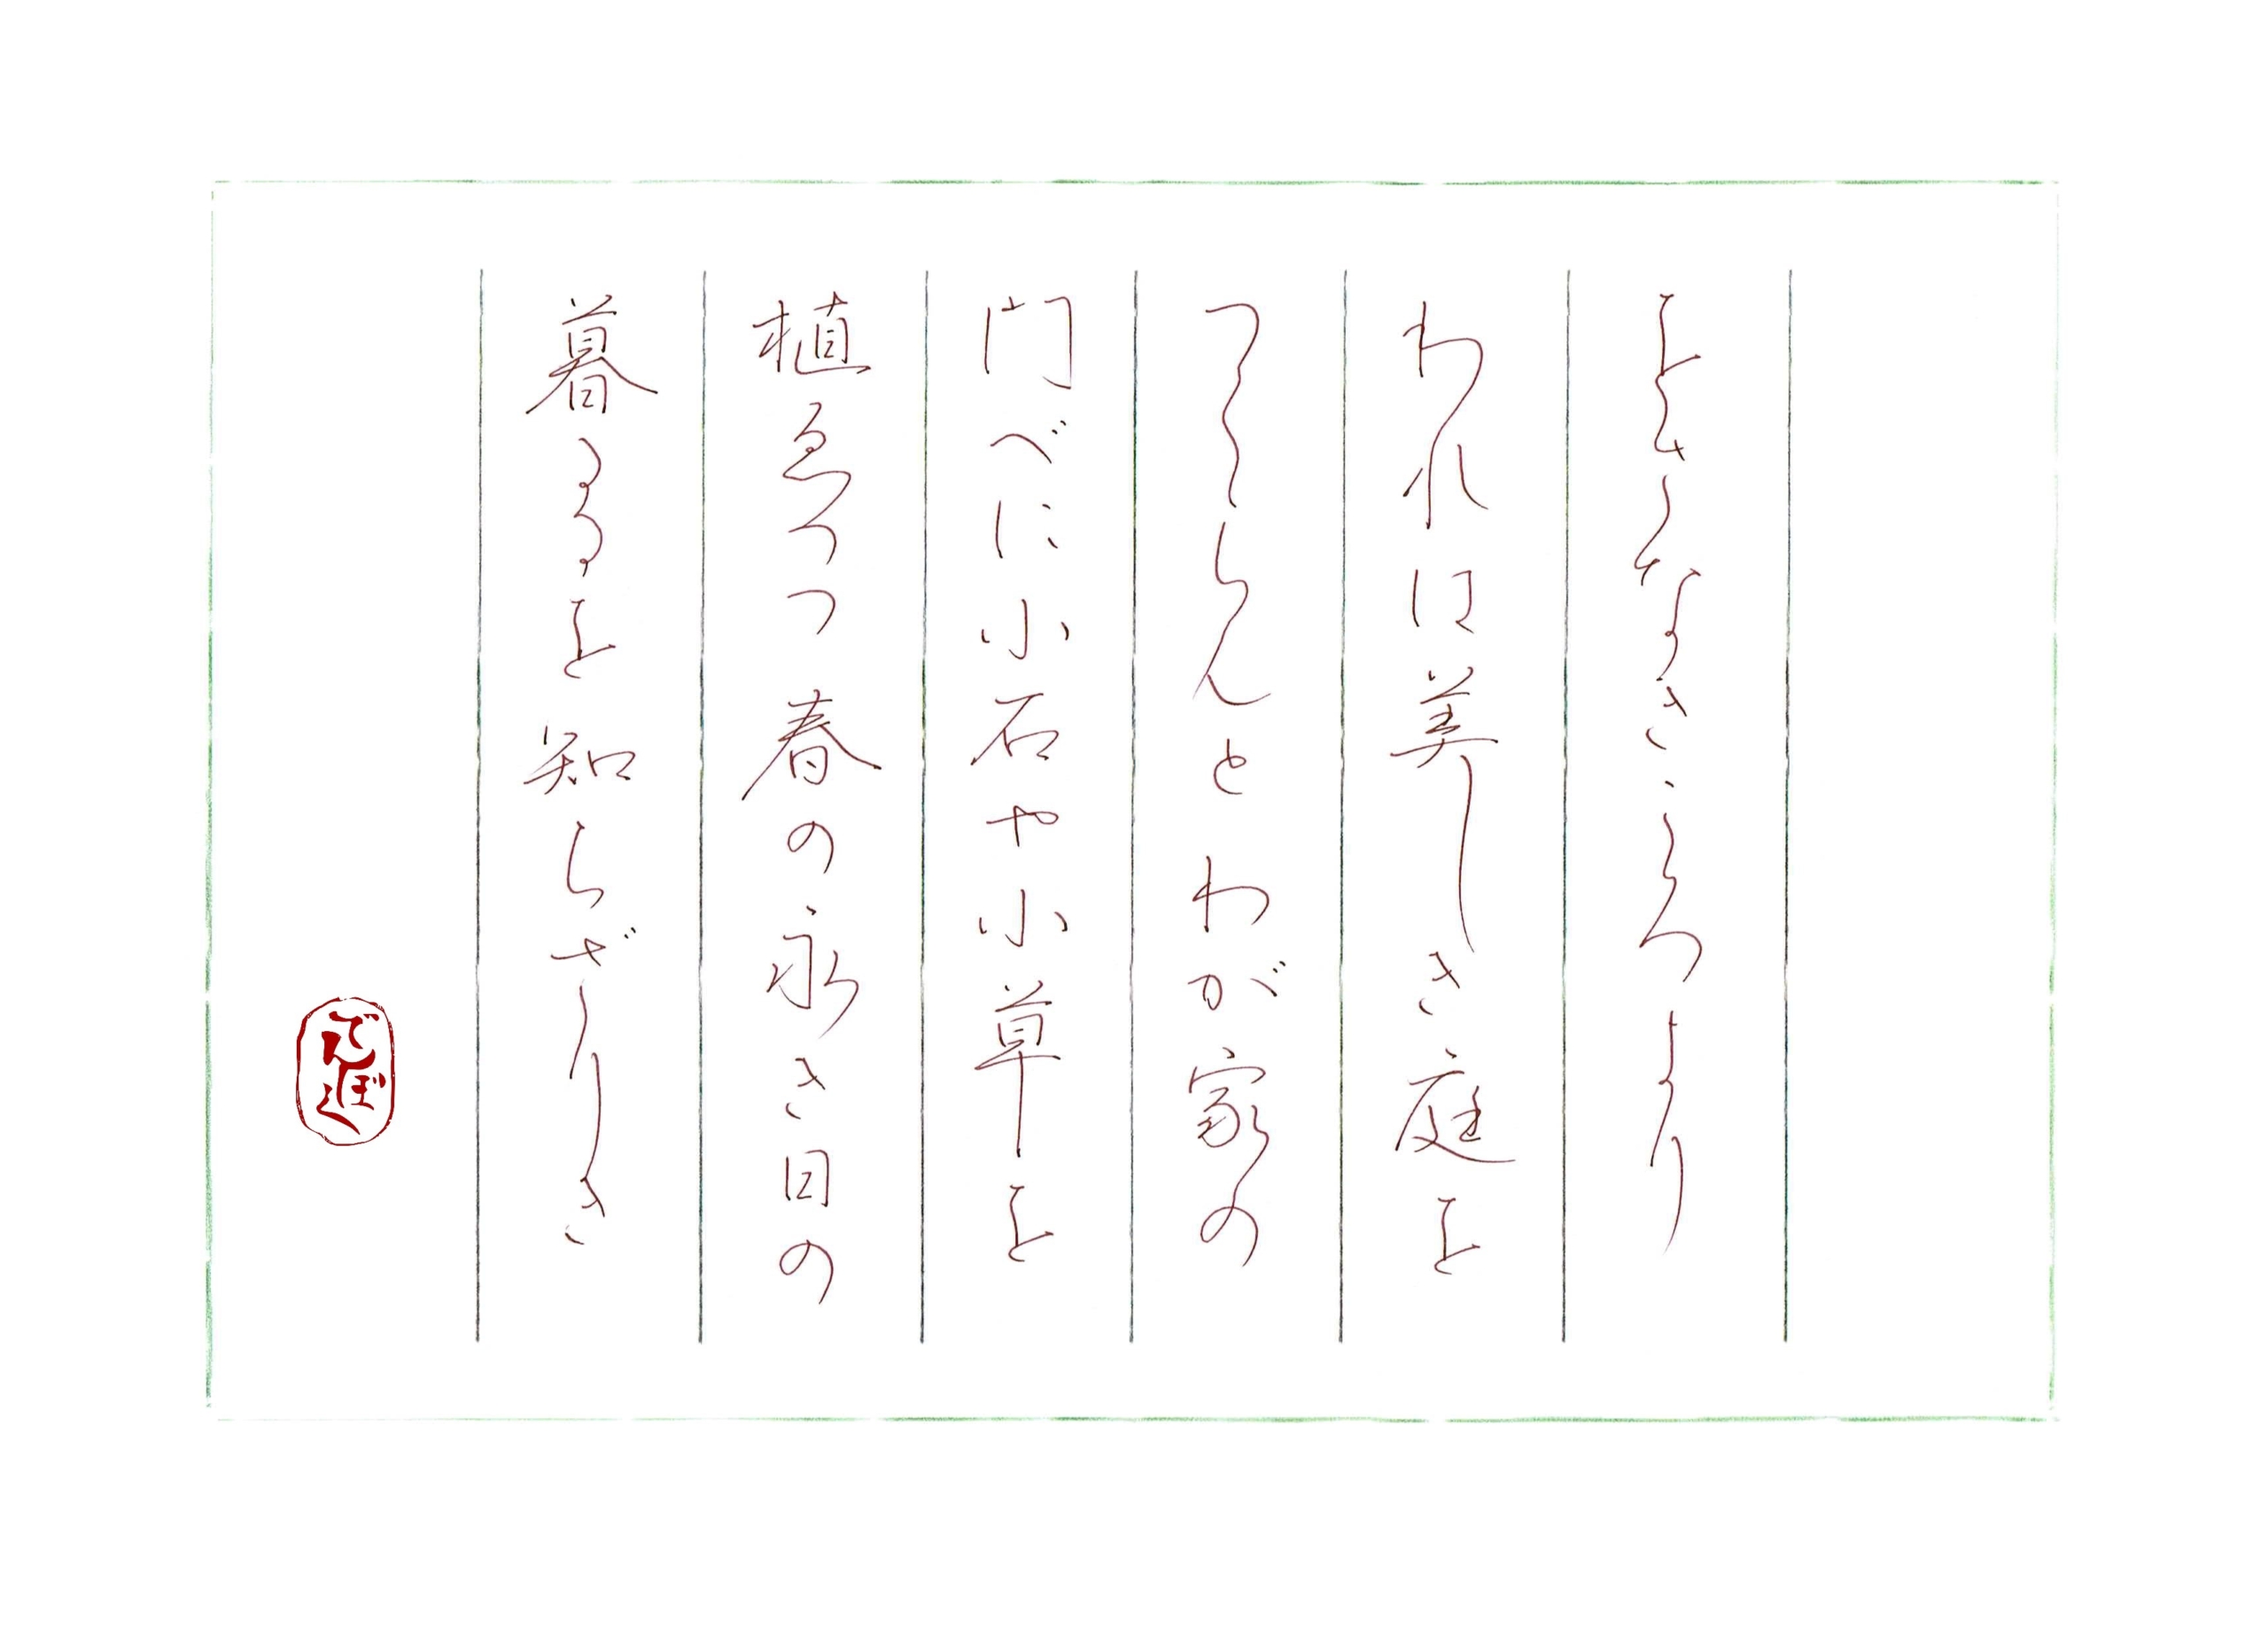 をさなきころより
われは美しき庭を
つくらんとわが家の
門べに小石や小草を
植ゑつつ春の永き日の
暮るるを知らざりき
でんぼく